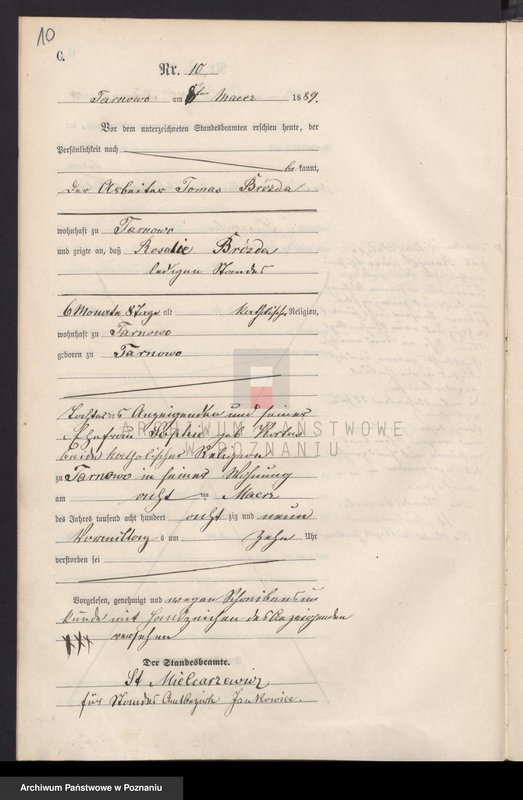 10
C.
Nr. 10
Tarnowo am 8ten Maerz 1889.
Vor dem unterzeichneten Standesbeamten erschien heute, der
Persönlichkeit nach
be kannt,
der Arbeiter Tomas Brózda
wohnhaft zu Tarnowo
und zeigte an, daß Rosalie Brózda
ledigen Standes
6 Monate 8 Tage alt katholischer Religion,
wohnhaft zu Tarnowo
geboren zu Tarnowo
Tochter des Anzeigenden und seiner
Ehefrau Sophie geb
beide katholischer Religion
zu Tarnowo in seiner Wohnung
am acht ten Maerz
des Jahres tausend acht hundert acht zig und neun
Vormittags um zehn Uhr
verstorben sei
Vorgelesen, genehmigt und wegen Schreibensun
kunde mit Handzeichen des Anzeigenden
+++ versehen
Der Standesbeamte.
St Mielcarzewicz
für Standes Amtbezirk Jankowice.
ARCHIWUM PAŃSTWOWE
W POZNANIU
Archiwum Państwowe w Poznaniu